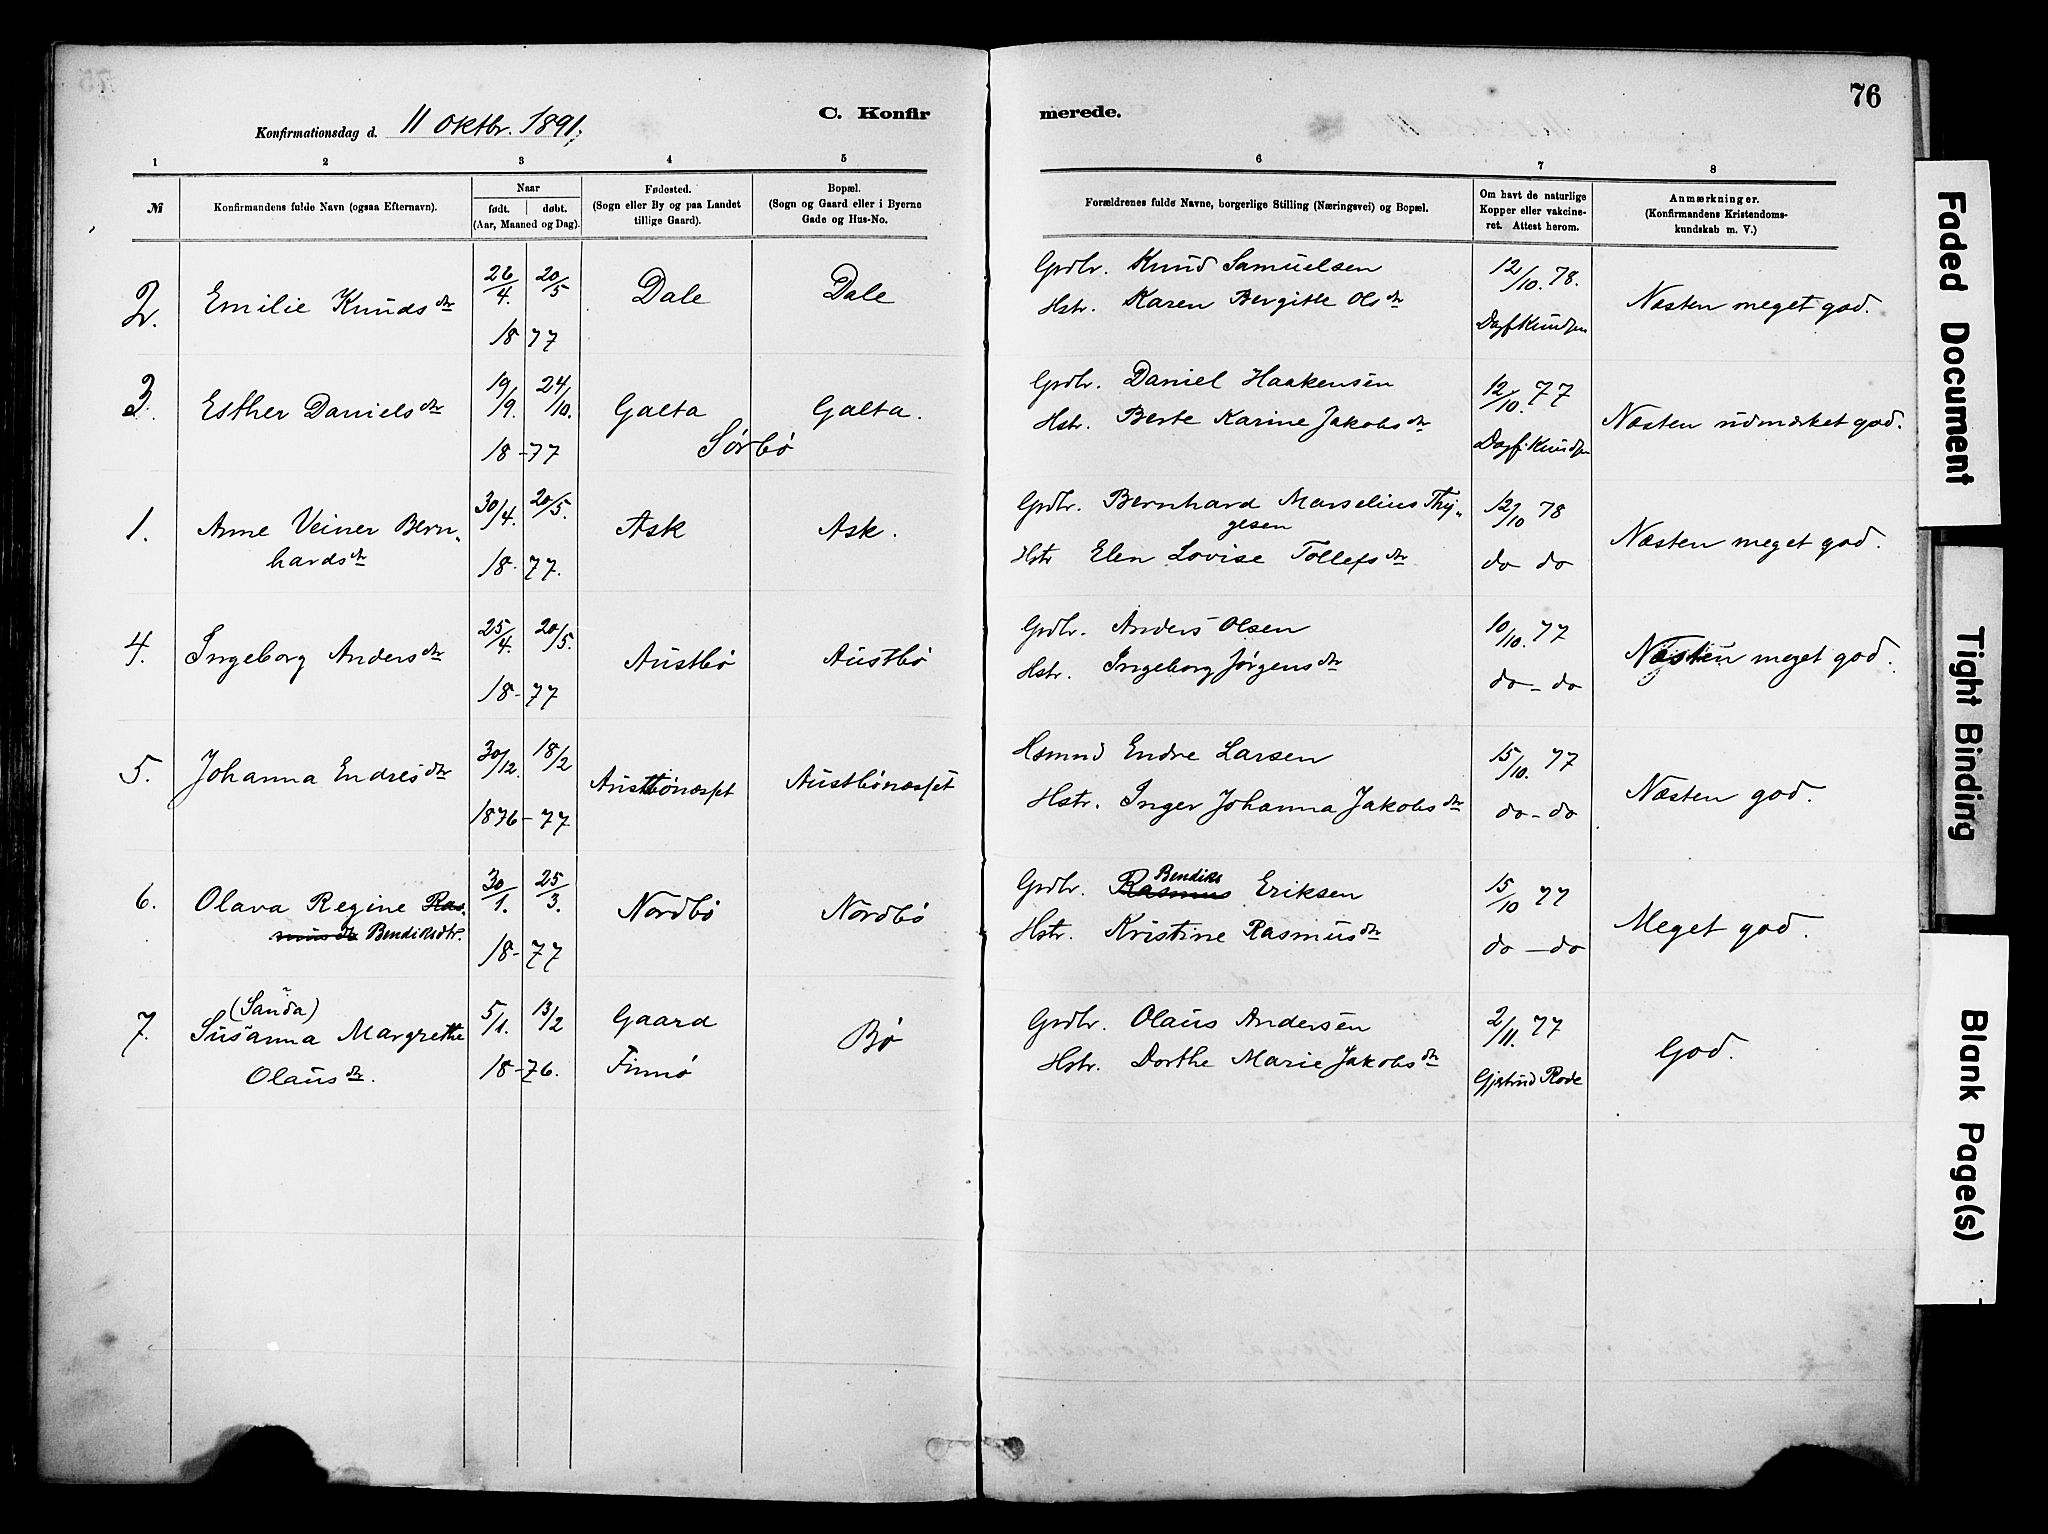 76
C. Konfirmerede.
Konfirmationsdag d. 11 Oktbr. 1891.
1 2 3 4 5 6 7 8
№
Konfirmandens fulde Navn (ogsaa Efternavn).
Naar
født. | døbt.
(Aar, Maaned og Dag).
Fødested.
(Sogn eller By og paa Landet
tillige Gaard).
Bopæl.
(Sogn og Gaard eller i Byerne
Gade og Hus-No.
Forældrenes fulde Navne, borgerlige Stilling (Næringsvei) og Bopæl.
Om havt de naturlige
Kopper eller vakcine-
ret. Attest herom.
Anmærkninger.
(Konfirmandens Kristendoms-
kundskab m. V.)
2. Emilie Knudsdtr 26/4. 20/5 Dale Dale Grdbr. Knud Samuelsen 12/10. 78. Næsten meget god.
18 77 Hstr. Karen Bergitte Olsdtr Dagf Knudsen
3. Esther Danielsdtr 19/9. 24/10. Galta Galta. Grdbr. Daniel Haakensen 12/10. 77 Næsten udmærket god.
18-77 Sørbø Hstr. Berte Karine Jakobsdtr Dagf. Knudsen
1. Anne Veiner Bern„ 30/4. 20/5. Ask Ask. Grdbr. Bernhard Marselius Thy„ 12/10 78 Næsten meget god.
gesen
hardsdtr 18. 77. Hstr Elen Lovise Tollefsdtr do do
4. Ingeborg Andersdtr 25/4. 20/5. Austbø Austbø Grdbr. Anders Olsen 10/10. 77 Næsten meget god.
18-77 Hstr. Ingeborg Jørgensdtr do-do
5. Johanna Endresdtr 30/12. 18/2 Austbønæsset Austbønæsset Hsmnd Endre Larsen 15/10. 77 Næsten god.
1876-77 Hstr. Inger Johanna Jakobsdtr do-do
6. Olava Regine Ras- 30/1. 25/3. Nordbø Nordbø Grdbr. Rasmus Bendiks Eriksen 15/10 77 Meget god.
musdtr Bendiksdtr. 18-77 Hstr. Kristine Rasmusdtr do-do
(Sanda)
7. Susanna Margrethe 5/1. 13/2 Gaard Bø Grdbr. Olaus Andersen 2/11. 77 God.
Olausdtr. 18-76. Finnø Hstr. Dorthe Marie Jakobsdtr Gjertrud Rode
Faded Document
Tight Binding
Blank Page(s)